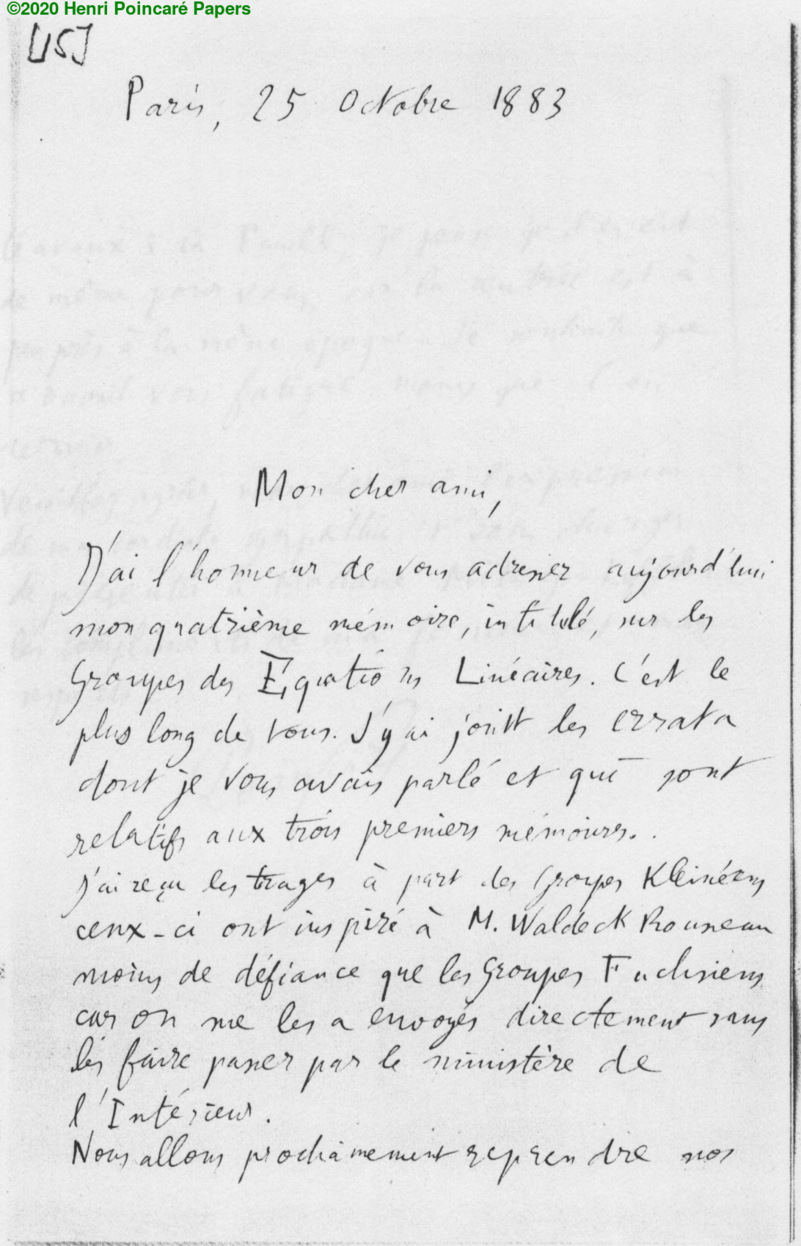 ©2020 Henri Poincaré Papers
[15]
Paris, 25 Octobre 1883
Mon cher ami,
J'ai l'honneur de vous adresser aujourd'hui
mon quatrième mémoire, intitulé, sur les
Groupes des Equations Linéaires. C'est le
plus long de tous. J'y ai joint les errata
dont je vous avais parlé et qui sont
relatifs aux trois premiers mémoires.
J'ai reçu les tirages à part des Groupes Kleinéens
ceux-ci ont inspiré à M. Waldeck Rousseau
moins de défiance que les Groupes Fuchsiens
car on me les a envoyés directement sans
les faire passer par le ministère de
l'Intérieur.
Nous allons prochainement reprendre nos